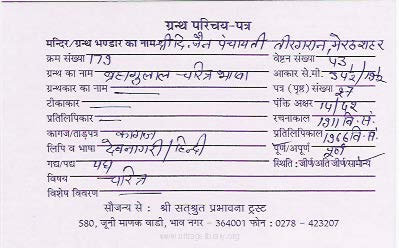 ग्रन्थ परिचय-पत्र
मन्दिर/ग्रन्थ भण्डार का नाम श्री दि. जैन पंचायती तीरगरान, मेरठ शहर
क्रम संख्या 179 वेष्टन संख्या 43
ग्रन्थ का नाम ब्रह्मगुलाल चरित्र भाषा आकार से.मी.
ग्रन्थकार का नाम पत्र (पृष्ठ) संख्या 27
टीकाकार पंक्ति अक्षर 14/42
प्रतिलिपिकार रचनाकाल 1911 वि. सं.
कागज/ताड़पत्र कागज प्रतिलिपिकाल 1966 वि. सं.
लिपि व भाषा देवनागरी / हिन्दी पूर्ण/अपूर्ण पूर्ण
गद्य/पद्य पद्य स्थिति : जीर्ण/अति जीर्ण/सामान्य
विषय चरित्र
विशेष विवरण
सौजन्य से : श्री सत्श्रुत प्रभावना ट्रस्ट
580, जूनी माणक वाडी, भाव नगर - 364001 फोन : 0278 - 423207